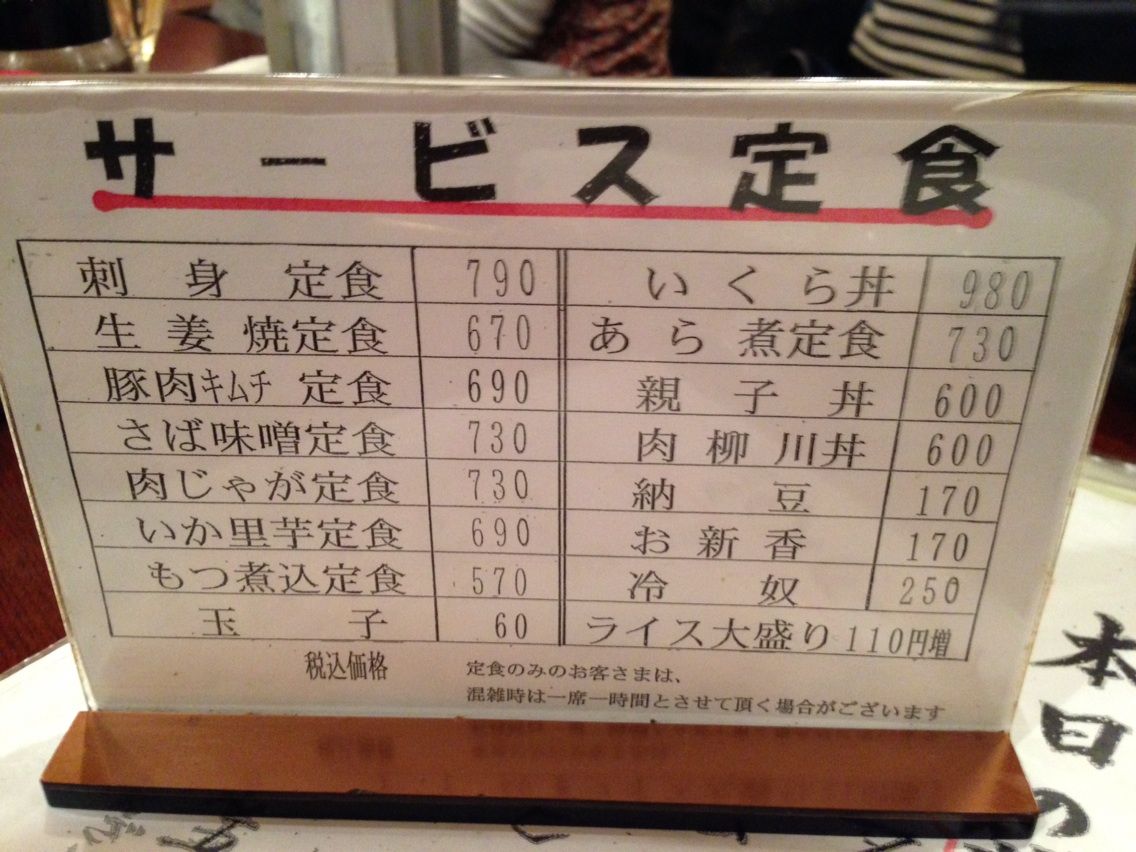 サービス定食
刺身定食 790 いくら丼 980
生姜焼定食 670 あら煮定食 730
豚肉ｷﾑﾁ定食 690 親子丼 600
さば味噌定食 730 肉柳川丼 600
肉じゃが定食 730 納豆 170
いか里芋定食 690 お新香 170
もつ煮込定食 570 冷奴 250
玉子 60 ライス大盛り 110円増
税込価格
定食のみのお客さまは、
混雑時は一席一時間とさせて頂く場合がございます
本日の